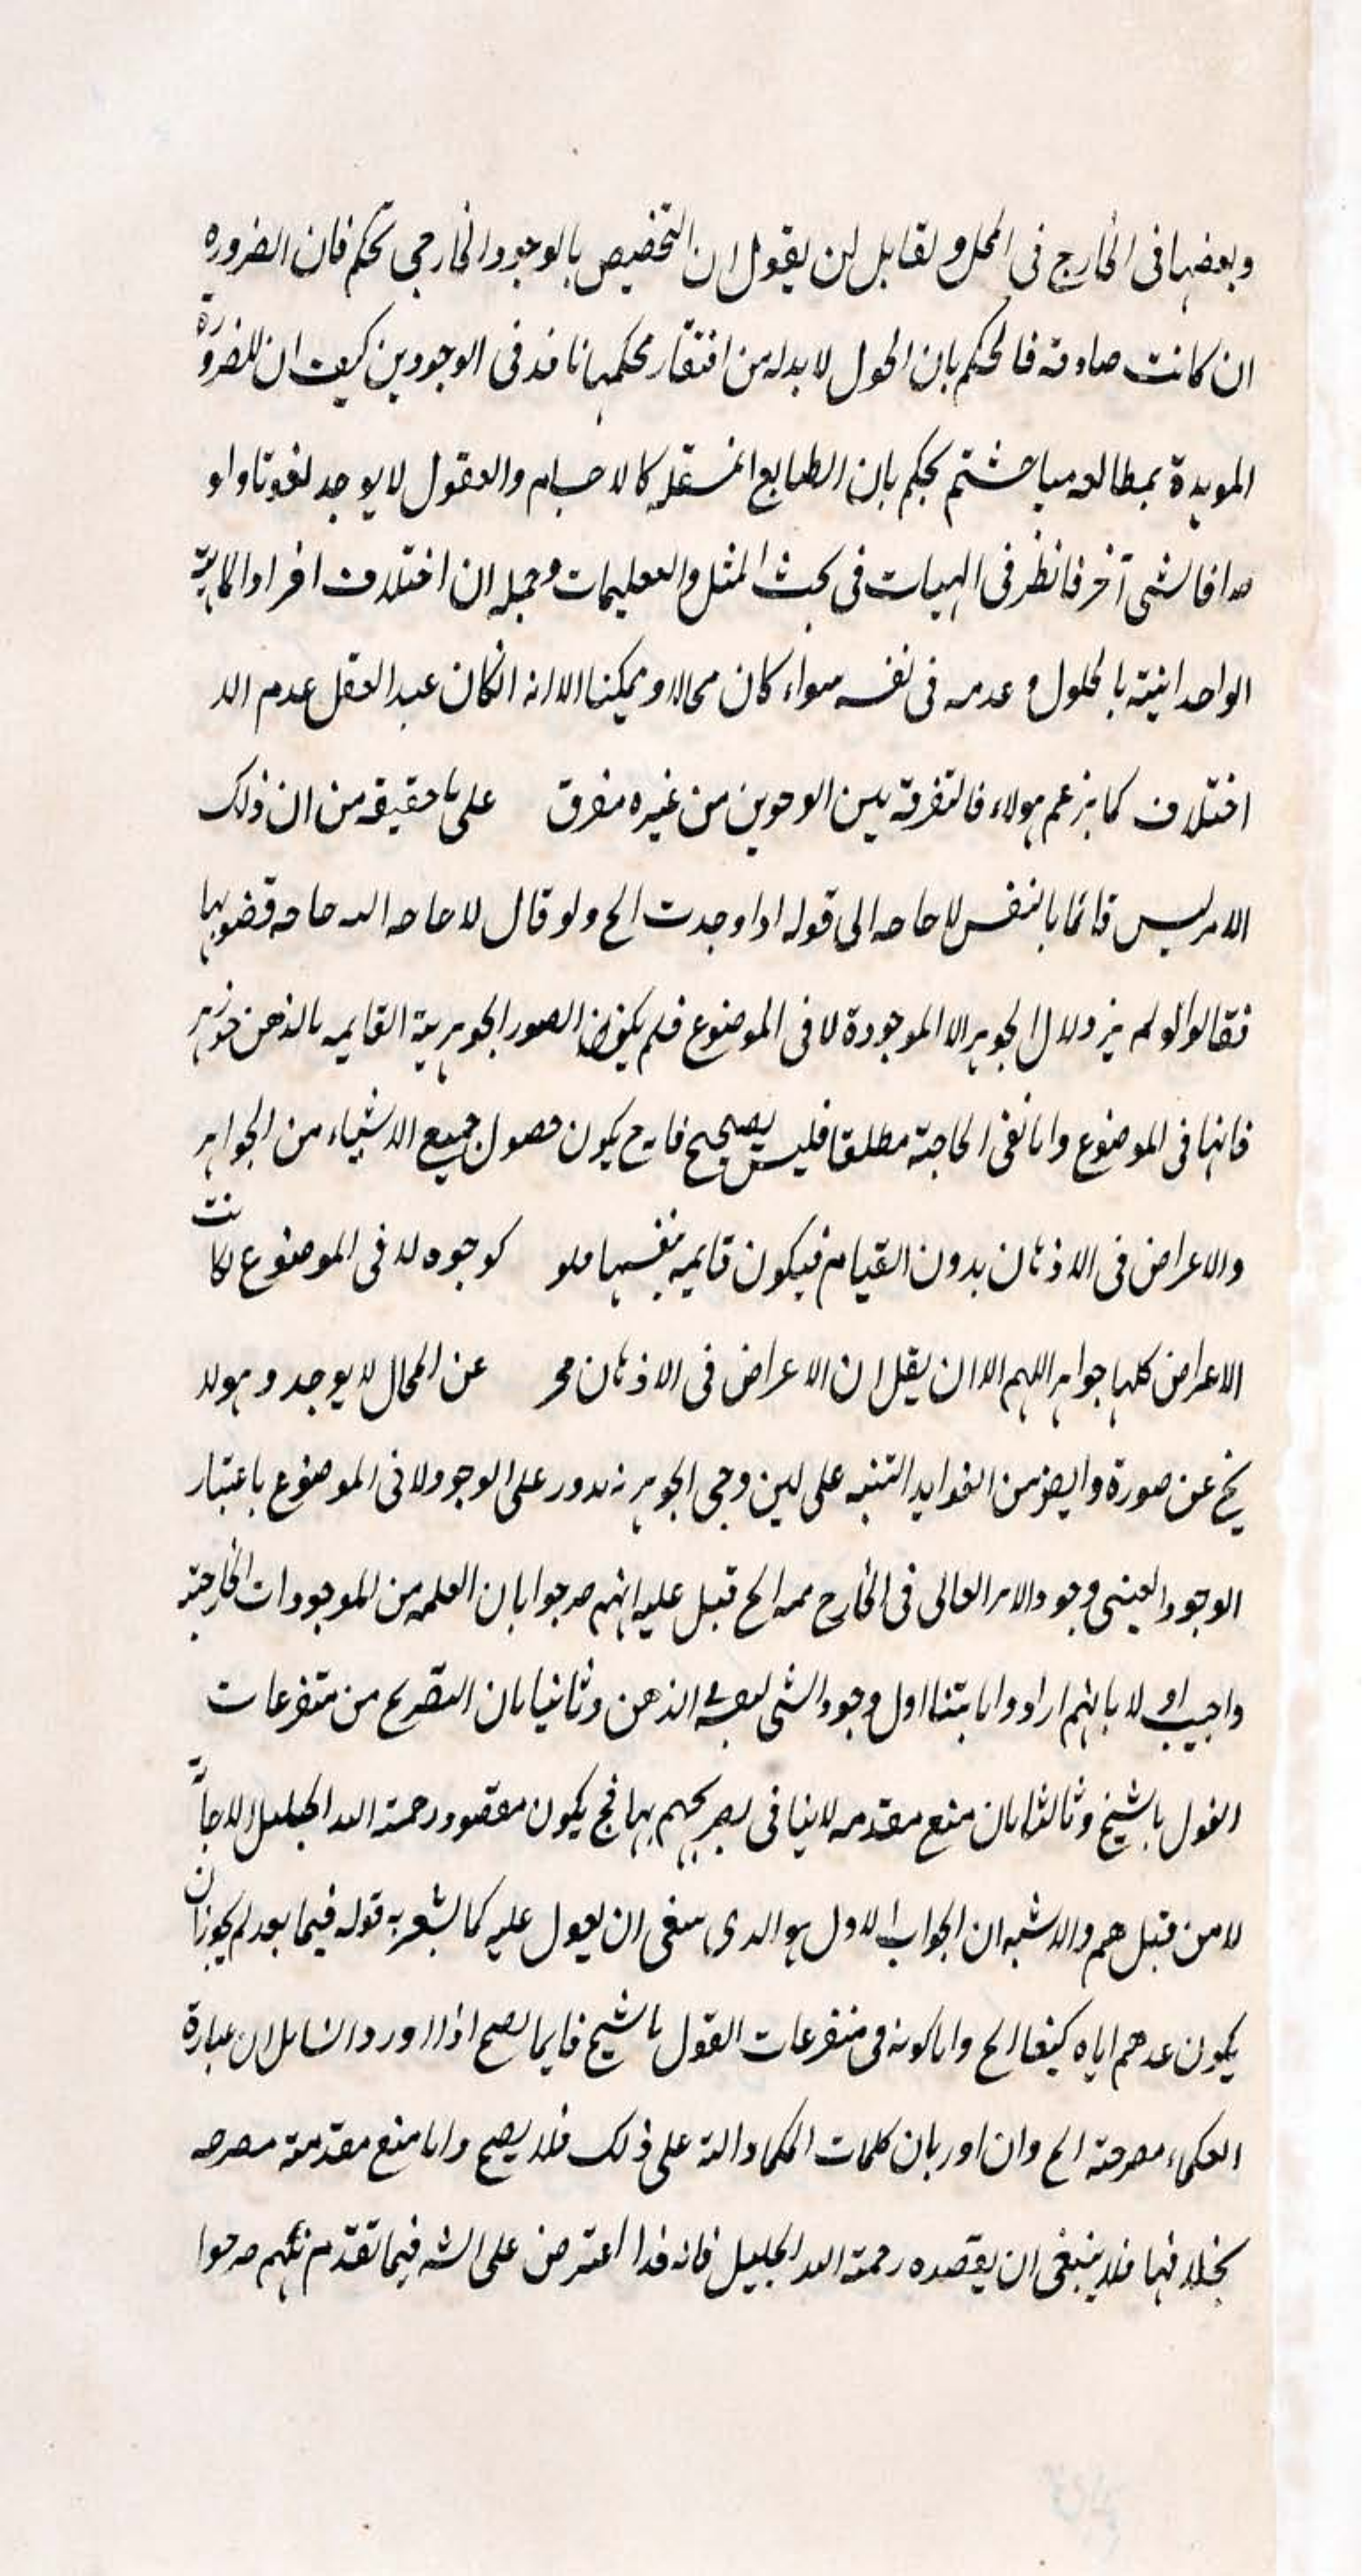 وبعضها فى الخارج فى المحل ولقابل ان يقول ان التخصيص بالوجود الخارجى تحكم فان الضروره
ان كانت صادقه فالحكم بان الحول لا بد له من افتقار محكمها نافذ فى الوجودين كيف ان للضرورة
المويدة بمطالعه مباحثتم يحكم بان الطبايع المستقله كالاجسام والعقول لا يوجد لغوتا ولو
صدافا لشى آخر فانظر فى الهيات فى بحث المثل والتعليمات وجمله ان اختلاف افراد الماهية
الواحدانية بالحلول وعدمه فى نفسه سواء كان محالا او ممكنا الا انه انكان عبد العقل عدم الد
اختلاف كما يزعم هولاء فالتفرقة بين الوجوين من غيره مفرق على ما حقيقه من ان ذلك
الامر ليس قائما بالنفس لا حاحه الى قوله ادا وجدت الخ ولو قال لا حاحه الىه حاحه قضوبها
فقالوا لو لم يزد لال الجوهر الا الموجودة لا فى الموضوع فلم يكن الصور الجوهرية القايمه بالذهن جوهر
فانها فى الموضوع واما نفى الحاجة مطلقا فليس بصحيح فانه ح يكون حصول جميع الاشياء من الجواهر
والاعراض فى الاذهان بدون القيام فيكون قايمه بنفسها فلو كوجوه له فى الموضوع لكانت
الاعراض كلها جواهر اللهم الا ان يقل ان الاعراض فى الاذهان مجر عن المحال لا يوجد وهو لا
يخ عن صورة وايض من الفوايد التنبه على لين وجى الجوهر نه تدور على الوجود لا فى الموضوع باعتبار
الوجود العينى وجود الامر العالى فى الخارج ممه الخ قيل عليه انهم صرجوا بان العلمه من الموجودات الخارجية
واجيب او لا بانهم ارادوا ما يتناول وجود الشى لعه الذهن وثانيا بان التصريح من متفرعات
القول باشيخ وثالثا بان منع مقدمه لا ينافى تصريحهم بها فح يكون مقصود رحمة الله الجليل الا لجأ
لا من قبلهم والاشبه ان الجواب الاول هو الدى ينبغى ان يعول عليه كما يشعر به قوله فيما بعد لم يجوز ان
يكون عدهم اياه كيفا الخ واما كونه فى متفرعات القول باشيخ فايما يصح اذا اورد السايل ان عبارة
الحكماء مصرحة الخ وان اور بان كلمات الحكما دالة على ذلك فلا يصح واما منع مقدمة مصرحه
بخلافها فلا ينبغى ان يقصده رحمة الله الجليل فانه قد اعترض على الشه فيما تقدم بانهم صرحوا